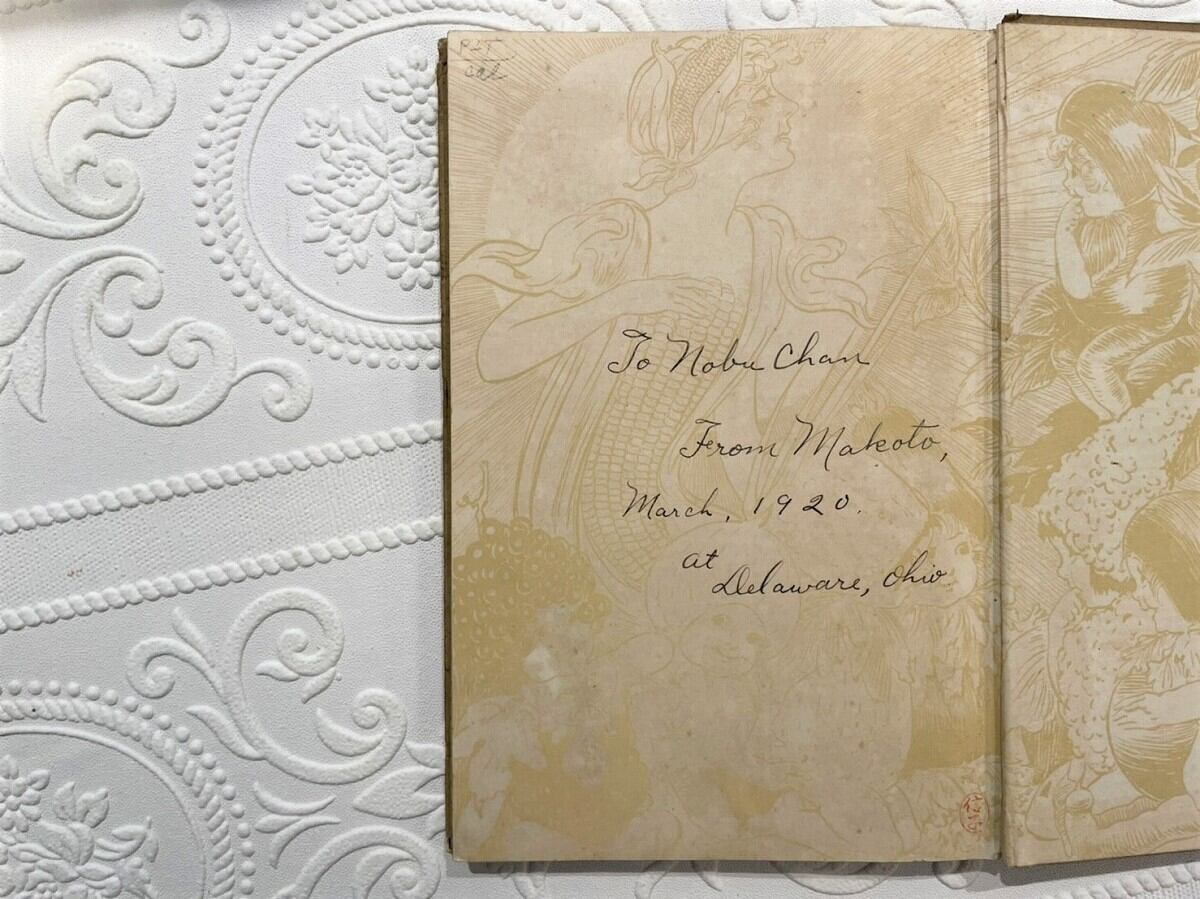 To Nobu Chan
From Makoto,
March, 1920.
at
Delaware, Ohio